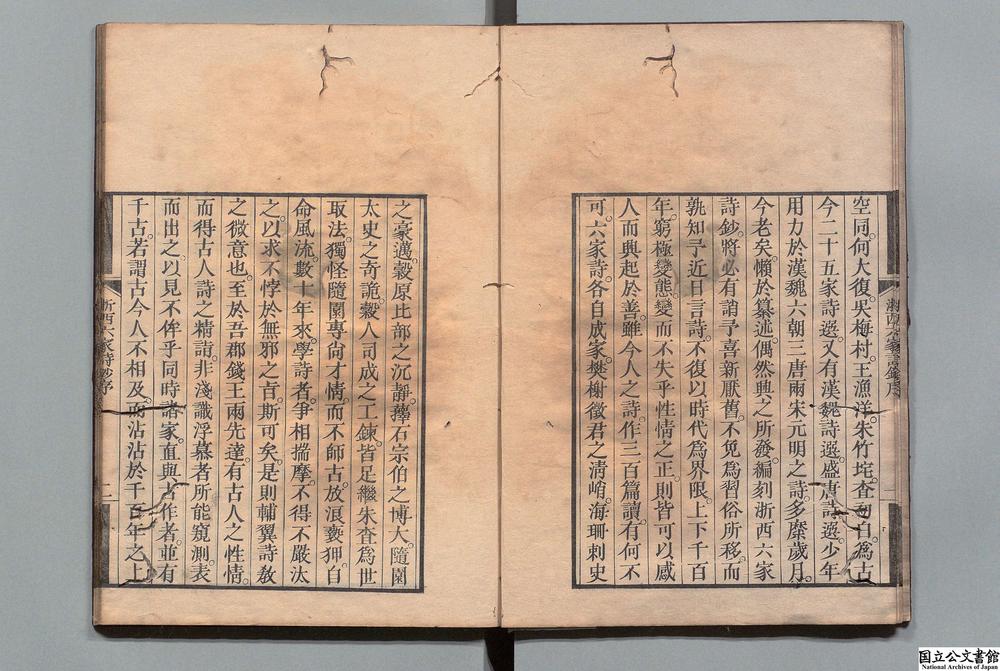 空同。何大復。吳梅村。王漁洋。朱竹垞。查初白。爲古
今二十五家詩選。又有漢魏詩選。盛唐詩選。少年
用力於漢魏六朝三唐兩宋元明之詩。多糜歲月。
今老矣。懶於纂述。偶然興之所發。編刻浙西六家
詩鈔。將必有誚予喜新厭舊。不免爲習俗所移。而
孰知予近日言詩。不復以時代爲界限。上下千百
年。窮極變態。變而不失乎性情之正。則皆可以感
人而興起於善。雖今人之詩。作三百篇讀。有何不
可。六家詩。各自成家。樊榭徵君之清峭。海珊刺史
浙西六家詩鈔序
之豪邁。穀原比部之沉靜。蘀石宗伯之博大。隨園
太史之奇詭。穀人司成之工鍊。皆足繼朱查爲世
取法。獨怪隨園專尙才情。而不師古。放浪褻狎。自
命風流。數十年來。學詩者。爭相揣摩。不得不嚴汰
之。以求不悖於無邪之旨。斯可矣。是則輔翼詩敎
之微意也。至於吾郡錢王兩先達。有古人之性情。
而得古人詩之精詣。非淺識浮慕者所能窺測。表
而出之。以見不侔乎同時諸家。直與古作者並有
千古。若謂古今人不相及。而沾沾於千百年之上
浙西六家詩鈔序
二
国立公文書館
National Archives of Japan